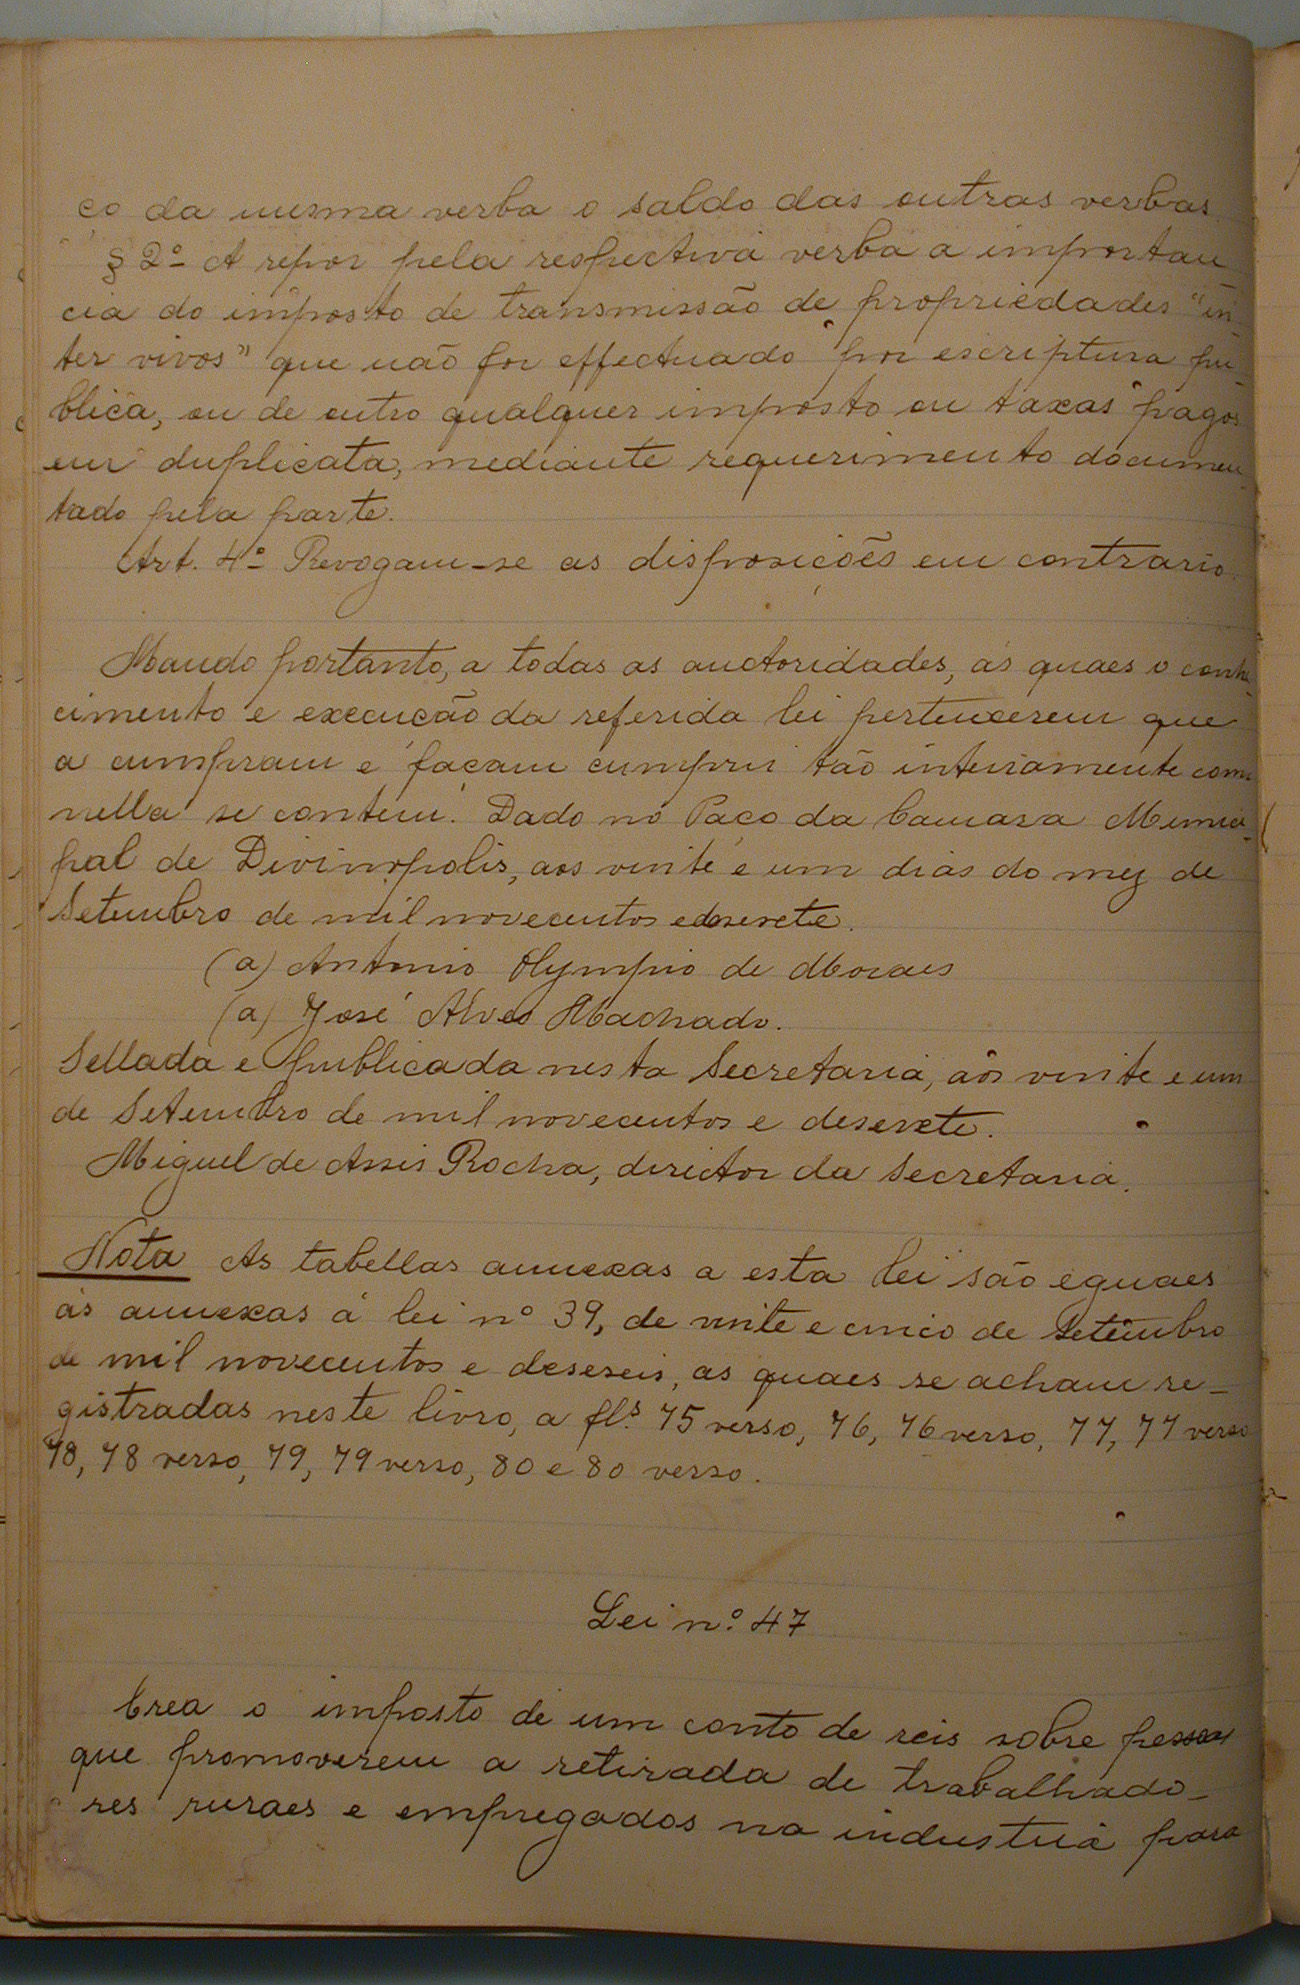 ço da mesma verba o saldo das outras verbas
§ 2º A repor pela respectiva verba a importan
cia do imposto de transmissão de propriedades "in
ter vivos" que não for effectuado por escriptura pu-
blica, ou de outro qualquer imposto ou taxas pagos
em duplicata, mediante requerimento documen-
tado pela parte.
Art. 4º Revogam-se as disposições em contrario
Mando portanto, a todas as auctoridades, ás quaes o conhe
cimento e execução da referida lei pertencerem que
a cumpram e façam cumprir tão inteiramente como
nella se contem. Dado no Paço da Camara Munici-
pal de Divinopolis, aos vinte e um dias do mez de
Setembro de mil novecentos e desesete.
(a) Antonio Olympio de Moraes
(a) José Alves Machado.
Sellada e publicada nesta Secretaria, aos vinte e um
de Setembro de mil novecentos e desesete.
Miguel de Assis Rocha, director da Secretaria.
Nota As tabellas annexas a esta lei são eguaes
ás annexas á lei nº 39, de vinte e cinco de Setembro
de mil novecentos e deseseis, as quaes se acham re-
gistradas neste livro, a fls. 75 verso, 76, 76 verso, 77, 77 verso
78, 78 verso, 79, 79 verso, 80 e 80 verso.
Lei nº 47
Crea o imposto de um conto de reis sobre pessoas
que promoverem a retirada de trabalhado-
res ruraes e empregados na industria para